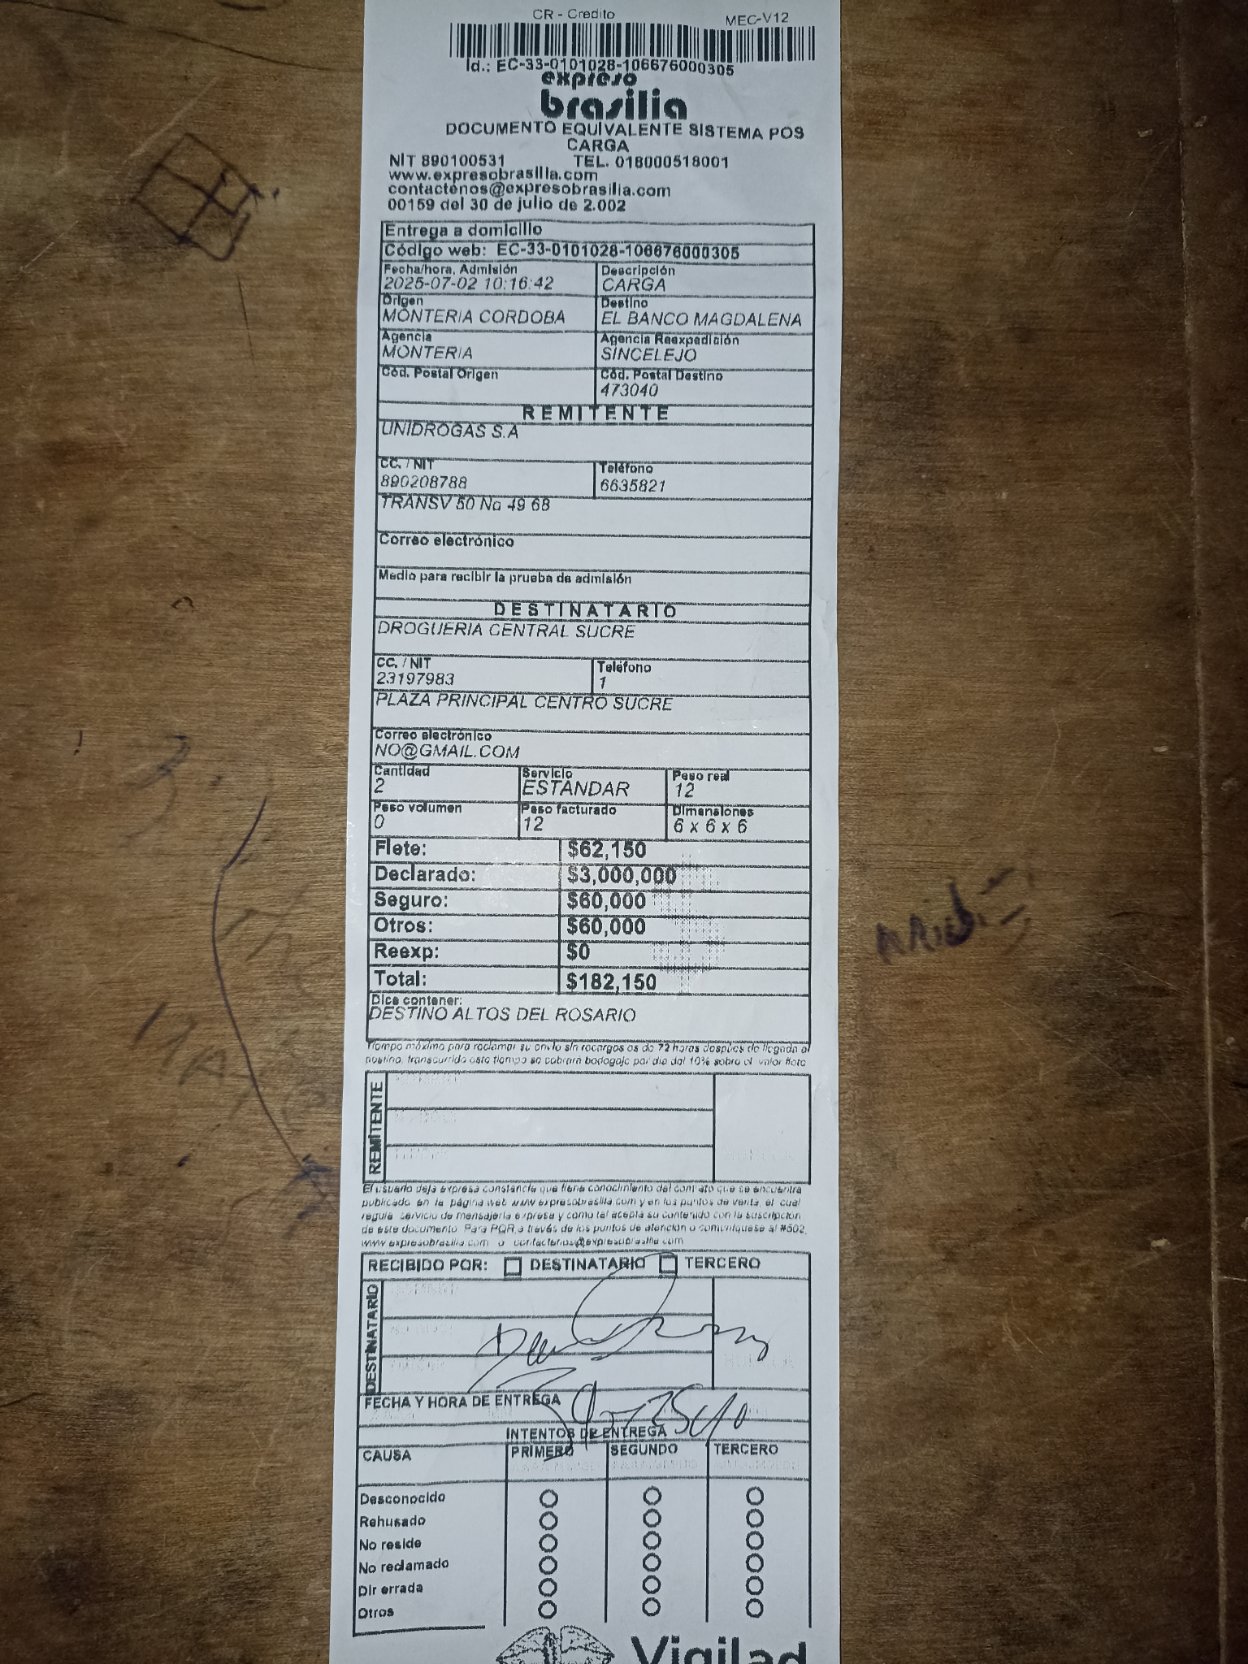 CR - Credito MEC-V12
Id.: EC-33-0101028-106676000305
expreso
brasilia
DOCUMENTO EQUIVALENTE SISTEMA POS
CARGA
NIT 890100531 TEL. 018000518001
www.expresobrasilia.com
contactenos@expresobrasilia.com
00159 del 30 de julio de 2.002
Entrega a domicilio
Código web: EC-33-0101028-106676000305
Fecha/hora. Admisión Descripción
2025-07-02 10:16:42 CARGA
Origen Destino
MONTERIA CORDOBA EL BANCO MAGDALENA
Agencia Agencia Reexpedición
MONTERIA SINCELEJO
Cód. Postal Origen Cód. Postal Destino
473040
REMITENTE
UNIDROGAS S.A
CC. / NIT Teléfono
890208788 6635821
TRANSV 50 No 49 68
Correo electrónico
Medio para recibir la prueba de admisión
DESTINATARIO
DROGUERIA CENTRAL SUCRE
CC. / NIT Teléfono
23197983 1
PLAZA PRINCIPAL CENTRO SUCRE
Correo electrónico
NO@GMAIL.COM
Cantidad Servicio Peso real
2 ESTANDAR 12
Peso volumen Peso facturado Dimensiones
0 12 6 x 6 x 6
Flete: $62,150
Declarado: $3,000,000
Seguro: $60,000
Otros: $60,000
Reexp: $0
Total: $182,150
Dice contener:
DESTINO ALTOS DEL ROSARIO
Tiempo máximo para reclamar su envío sin recargos es de 72 horas después de llegada al
destino, transcurrido este tiempo se cobrara bodegaje por dia del 10% sobre el valor flete
REMITENTE
El usuario deja expresa constancia que tiene conocimiento del contrato que se encuentra
publicado en la página web www.expresobrasilia.com y en los puntos de venta, el cual
regula servicio de mensajería expresa y como tal acepta su contenido con la suscripcion
de este documento. Para PQR a través de los puntos de atención o comuníquese al #502,
www.expresobrasilia.com o contactenos@expresobrasilia.com
RECIBIDO POR: DESTINATARIO TERCERO
DESTINATARIO
FECHA Y HORA DE ENTREGA
INTENTOS DE ENTREGA
CAUSA PRIMERO SEGUNDO TERCERO
Desconocido
Rehusado
No reside
No reclamado
Dir errada
Otros
Vigilad